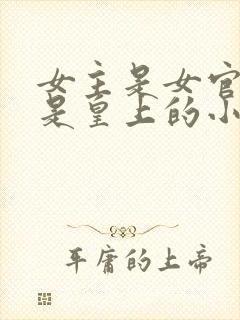 女主是女官
是皇上的小
平庸的上帝